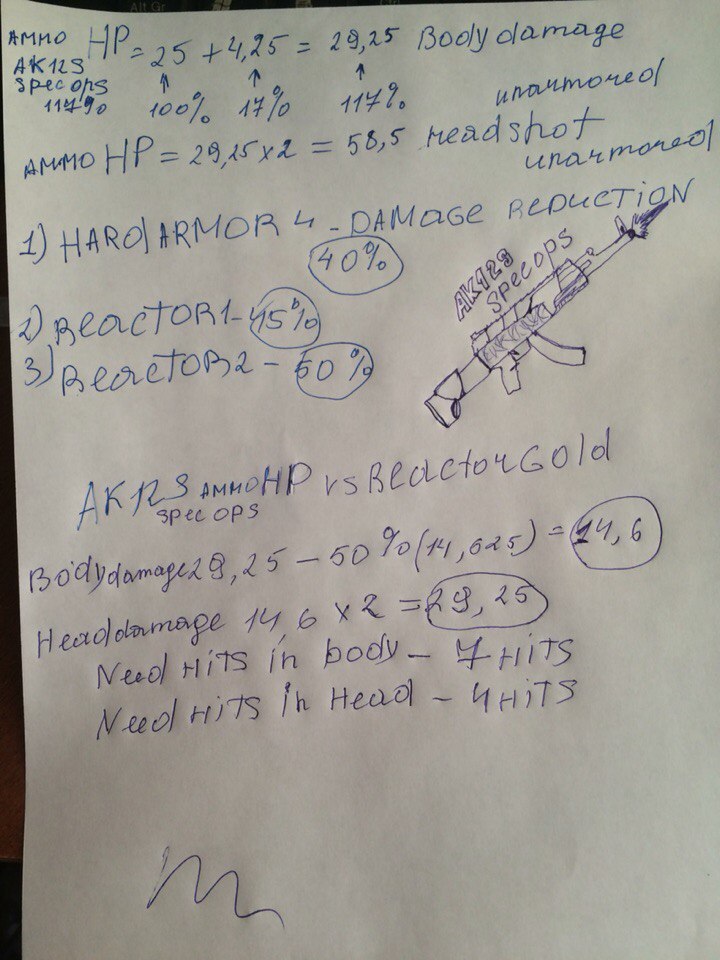 Alt Gr
AMMO HP = 25 + 4,25 = 29,25 Body damage
AK12S
Spec ops
117% 100% 17% 117% unarmored
AMMO HP = 29,25 x 2 = 58,5 Headshot
unarmored
1) HARd ARMOR 4 - DAMAGE REDUCTION
40%
2) ReactoR1 - 45%
3) ReactoR2 - 50%
AK12S
Spec ops
AK12S AMMO HP vs Reactor Gold
SPEC OPS
Body damage 29,25 - 50% (14,625) = 14,6
Head damage 14,6 x 2 = 29,25
Need HiTS in body - 7 HiTS
Need HiTS in Head - 4 HiTS